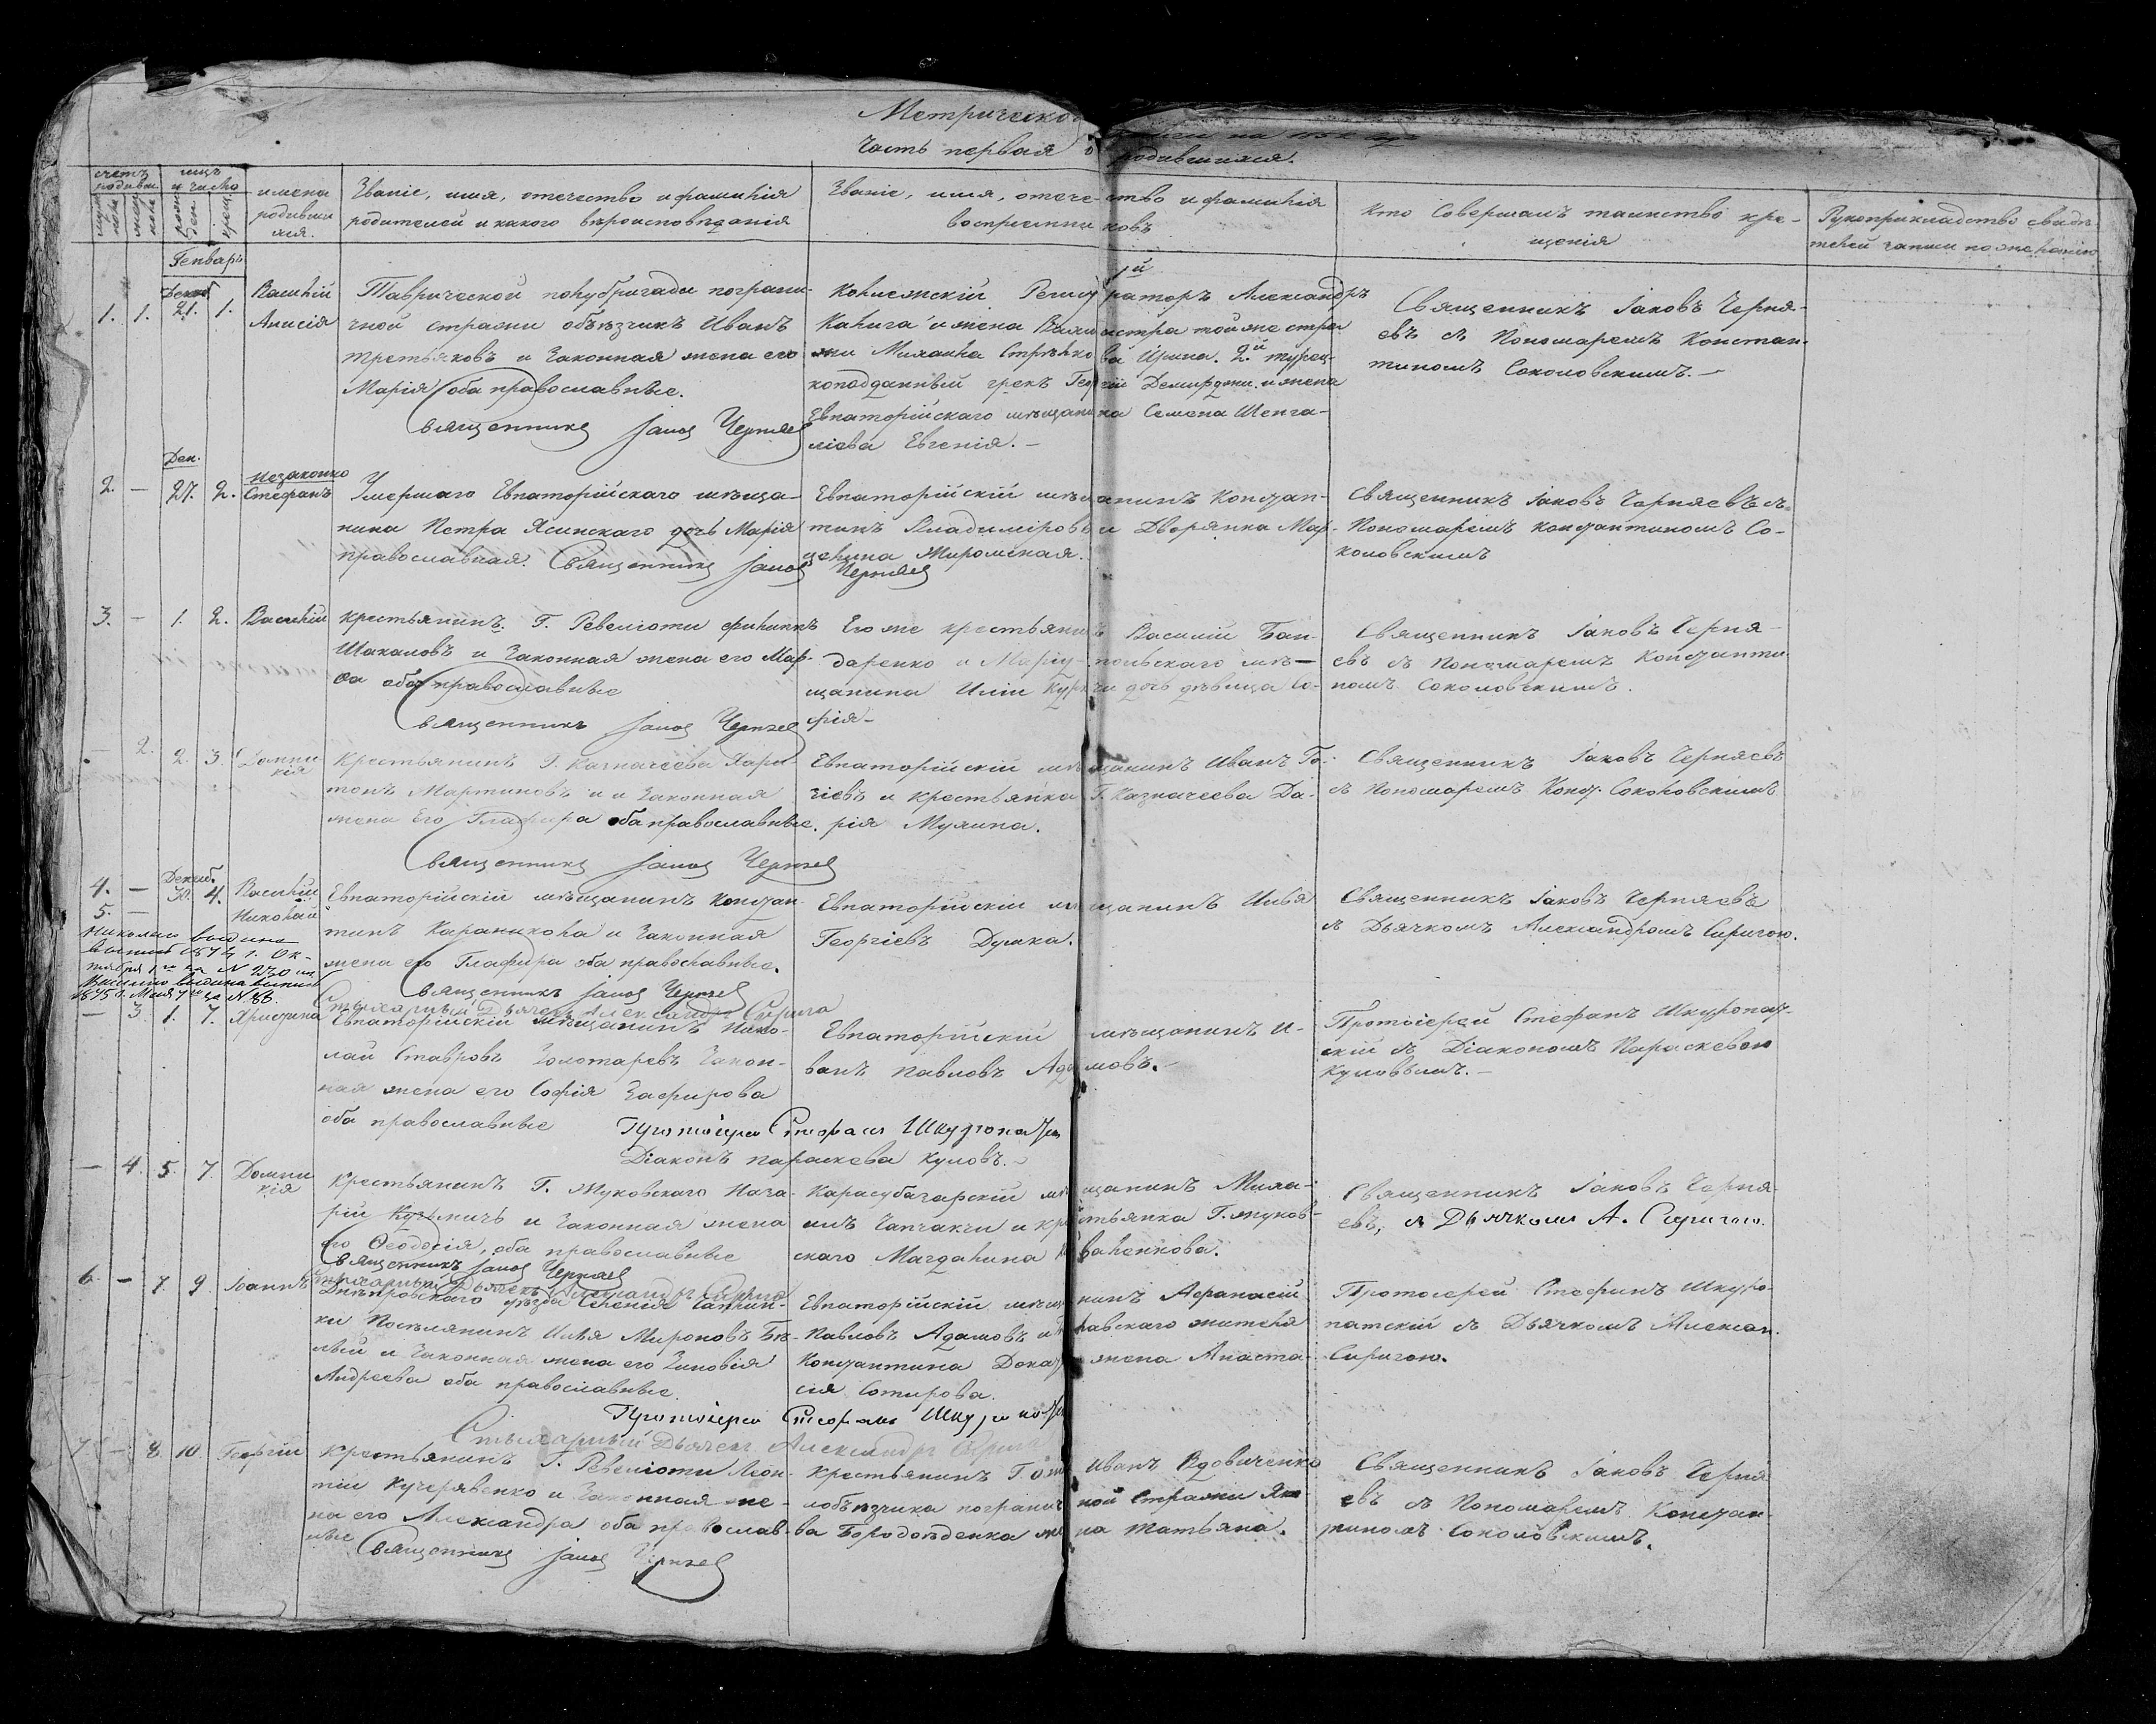 Метрическо
Часть первая о родившихся.
счетъ родивши
мѣсяцъ и число
муж. пола
жен. пола
рожден.
крещ.
имена родившихся.
Званіе, имя, отечество и фамилія
родителей и какого вѣроисповѣданія
Званіе, имя, отечество и фамилія
воспріемниковъ
Кто Совершалъ таинство кре-
щенія
Рукоприкладство свидѣ-
телей записи по желанію
Генварь
Декаб
1. 1. 21. 1.
Василій
Анисія
Таврической полубригады пограни-
чной стражи объѣзчикъ Иванъ
Третьяковъ и Законная жена его
Марія оба православные.
Священникъ Іаковъ Черняев
1й
Колежскій Регистраторъ Александръ
Калига и жена Вахмистра той же стра
жи Михаила Стрѣлко ва Ирина. 2й турец-
коподданный грекъ Георгій Демирджи и жена
Евпаторійскаго мѣщанина Семена Шенга-
лієва Евгенія. –
Священникъ Іаковъ Черня-
евъ съ Пономаремъ Констан-
тиномъ Соколовскимъ. –
Дек.
2. – 27. 2.
Незаконно
Стефанъ
Умершаго Евпаторійскаго мѣща-
нина Петра Ясинскаго дочь Марія
православная. Священникъ Іаковъ Черняев
Евпаторійскій мѣщанинъ Констан-
тинъ Владиміровъ и Дворянка Мар-
целина Жиромская.
Священникъ Іаковъ Черняевъ съ
Пономаремъ Константиномъ Со-
коловскимъ
3. – 1. 2.
Василій
Крестьянинъ Г. Ревеліоти Филиппъ
Шакаловъ и Законная жена его Мар-
ѳа оба православные
Священникъ Іаковъ Черняев
Его же крестьянинъ Василій Бан-
даренко и Маріу-польскаго мѣ-
щанина Иліи Курк чи дочь дѣвица Со-
фія –
Священникъ Іаковъ Черня-
евъ съ Пономаремъ Константи-
номъ Соколовскимъ.
– 2. 2. 3.
Домникія
Крестьянинъ Г. Казначеева Хари
тонъ Мартиновъ и Законная
жена Его Глафира оба православные.
Священникъ Іаковъ Черняев
Евпаторійскій мѣщанинъ Иванъ Го-
гіевъ и крестьянка Г. Казначеева Да-
рія Мухина.
Священникъ Іаковъ Черняевъ
съ Пономаремъ Конст. Соколовскимъ
Декаб.
4. – 30. 4.
5. –
Василій
Николай
Николаю выдана
выпис 1874 г. Ок-
тября 1го за N 230
Василію выдана выпис
1875 г. Мая 7го за N. 88.
Евпаторійскій мѣщанинъ Констан
тинъ Караникола и Законная
жена его Глафира оба православные.
Священникъ Іаковъ Черняев
Стихарный Дьячекъ Александръ Сирига
Евпаторійскій мѣщанинъ Илья
Георгіевъ Душка.
Священникъ Іаковъ Черняевъ
съ Дьячкомъ Александромъ Сиригою.
– 3. 1. 7.
Христина
Евпаторійскій мѣщанинъ Нико-
лай Ставровъ Золотаревъ Закон-
ная жена его Софія Зафирова
оба православные
Протоіерей Стефанъ Шкуропат
Діаконъ Параскева Куловъ. –
Евпаторійскій мѣщанинъ И-
ванъ Павловъ Адамовъ. –
Протоіерей Стефанъ Шкуропат-
скій съ Діакономъ Параскевою
Куловымъ. –
– 4. 5. 7.
Домникія
Крестьянинъ Г. Жуковскаго Наза-
рій Кузьмичь и Законная жена
его Ѳеодосія, оба православные
Священникъ Іаковъ Черняев
Стихарный Дьячекъ Александръ Сирига
Карасубазарскій мѣщанинъ Миха-
илъ Чапчакчи и крестьянка Г. Жуков-
скаго Магдалина валенкова.
Священникъ Іаковъ Черня-
евъ, съ Дьячкомъ А. Сиригою.
6. – 7. 9.
Іоаннъ
Днѣпровскаго уѣзда Селенія Чаплин-
ки Поселянинъ Илья Мироновъ Бѣ-
лый и Законная жена его Зиновія
Андреева оба православные.
Протоіерей Стефанъ Шкуропат
Стихарный Дьячекъ Александръ Сирига
Евпаторійскій мѣщанинъ Афанасій
Павловъ Адамовъ и равскаго жителя
Константина жена Анаста-
сія Сотирова.
Протоіерей Стефанъ Шкуро-
патскій съ Дьячкомъ Алексан.
Сиригою.
7. – 8. 10.
Георгій
Крестьянинъ Г. Ревеліоти Леон-
тій Кучерявенко и Законная же-
на его Александра оба православ-
ные Священникъ Іаковъ Черняев
Крестьянинъ Г. Иванъ Вдовиченко
и объѣзчика пограничной Стражи Яко
ва Бородоѣденка жена Татьяна.
Священникъ Іаковъ Черня
евъ съ Пономаремъ Констан-
тиномъ Соколовскимъ.